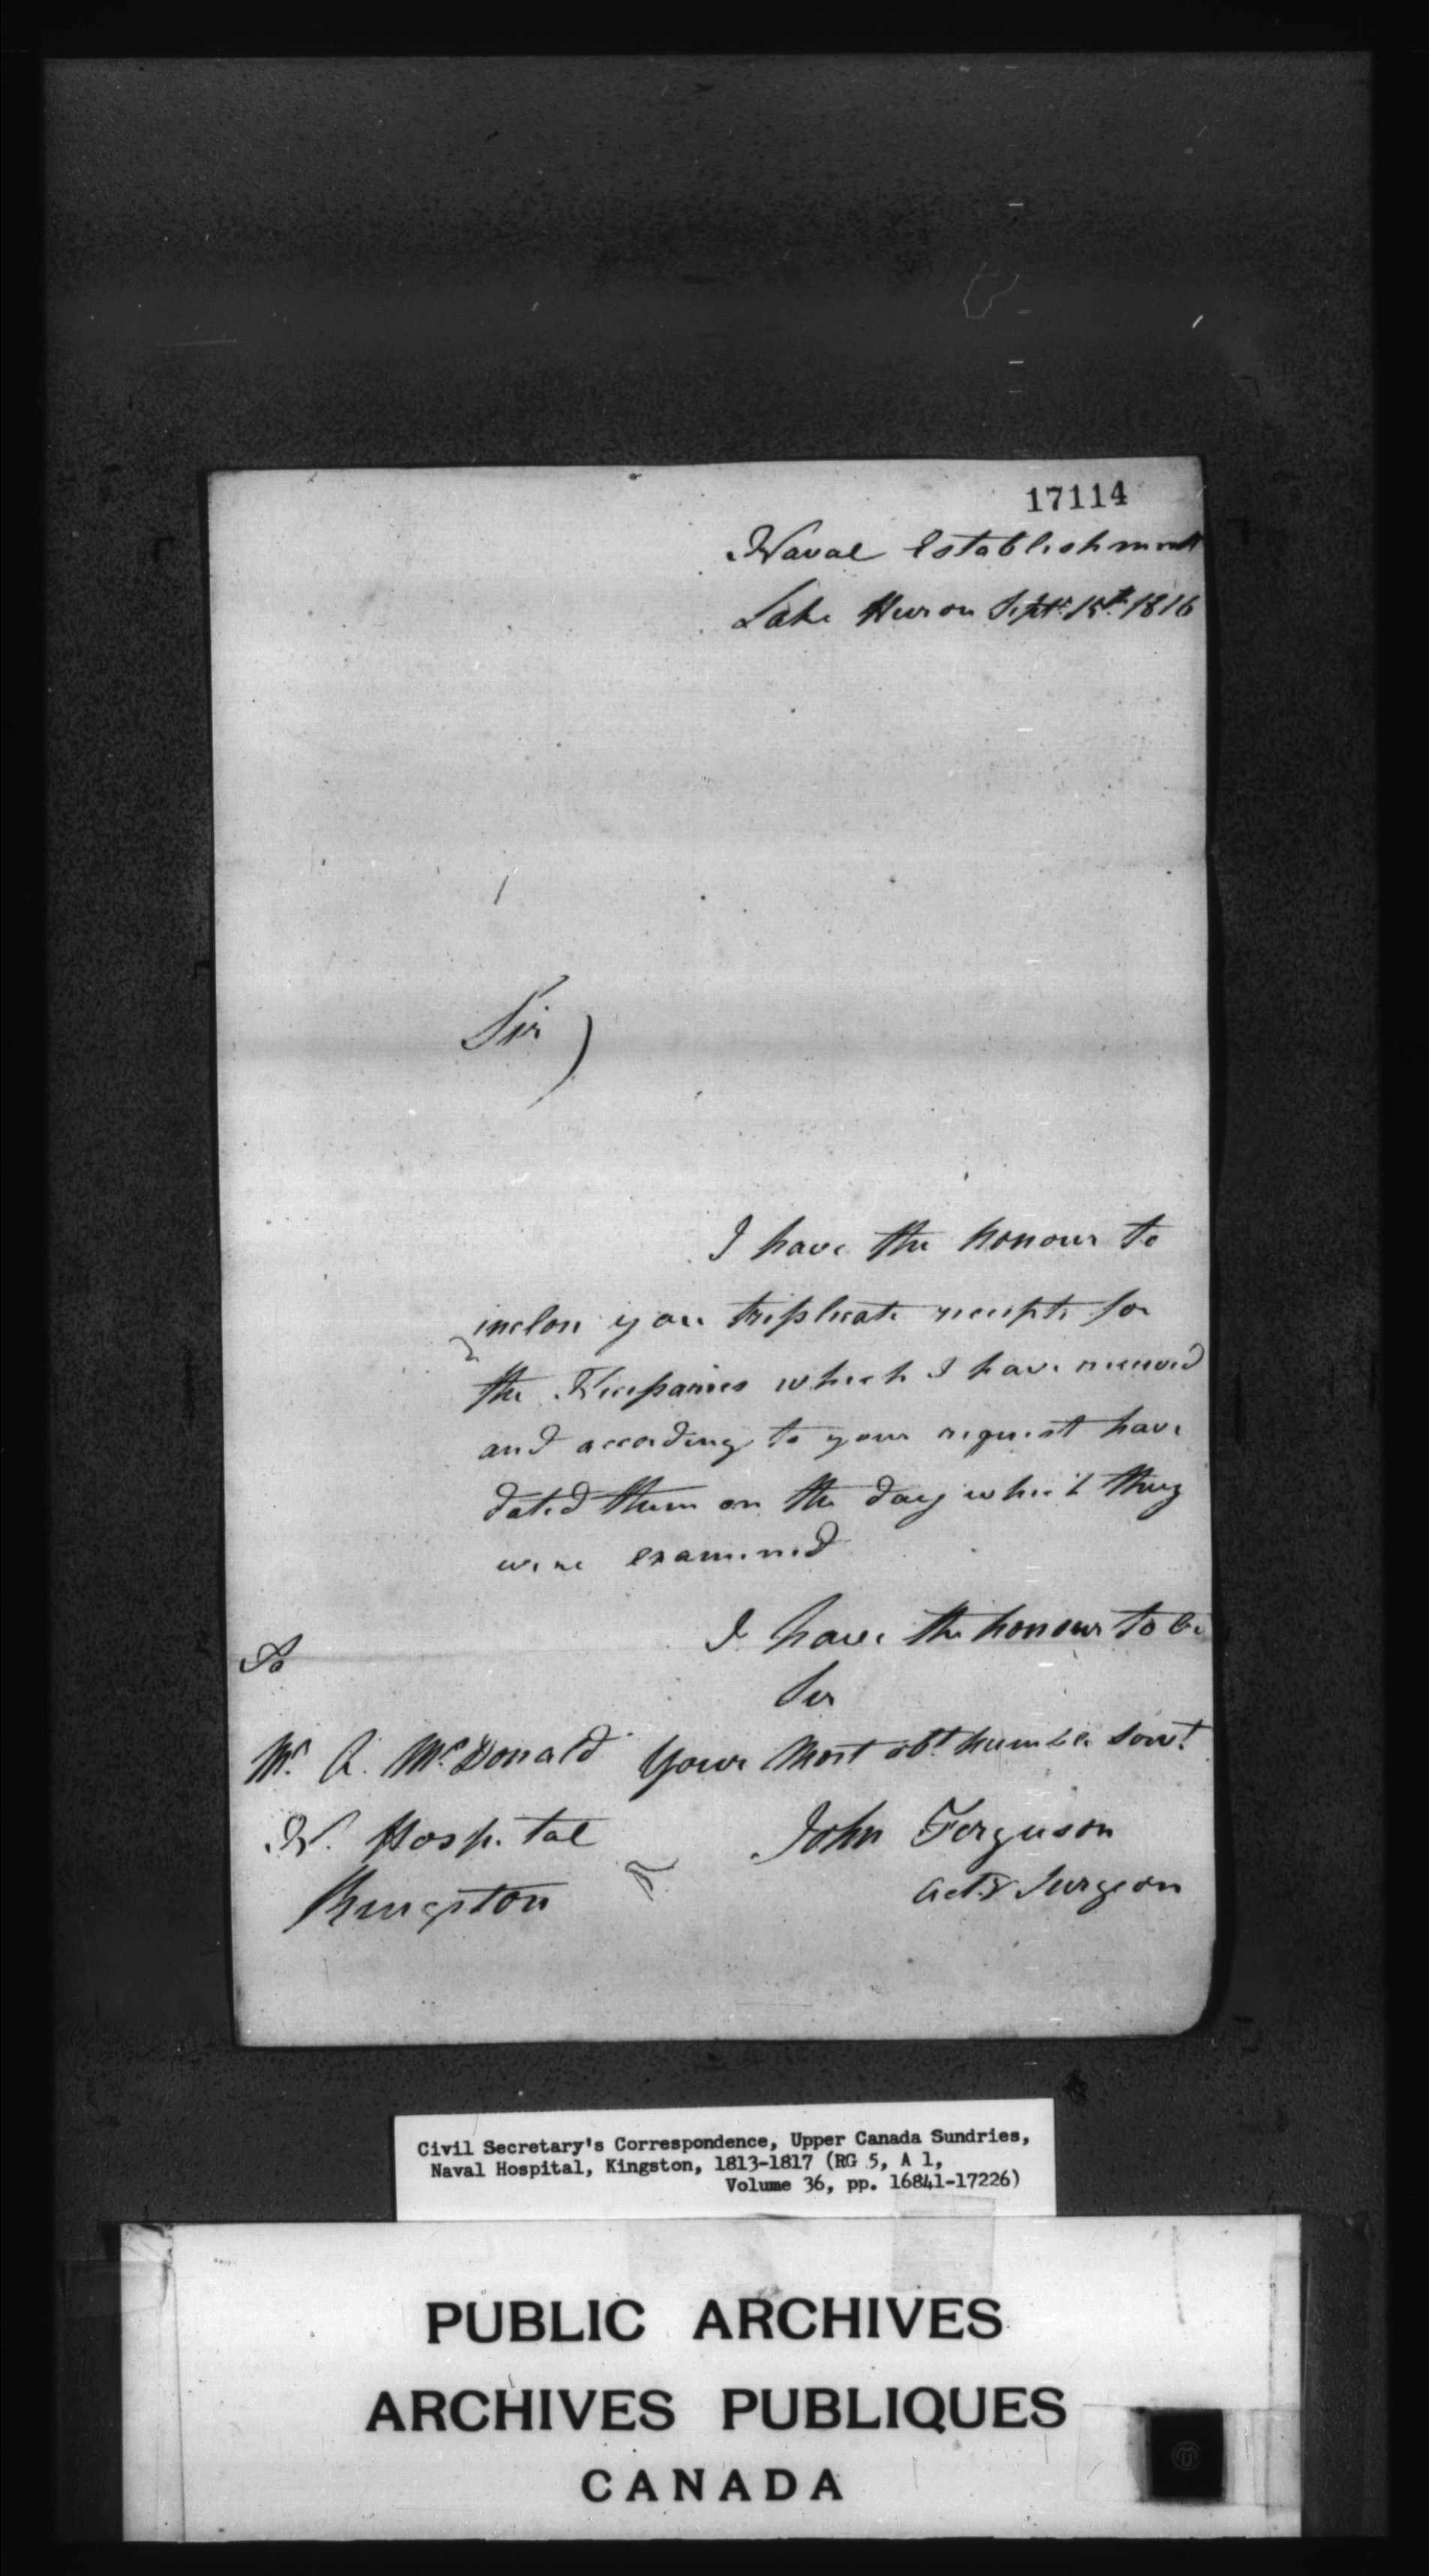 17114
Naval Establishment
Lake Huron Sept. 15th. 1816
Sir
I have the honour to
inclose you triplicate receipts for
the which I have received
and according to your request have
dated them on the day which they
were examined
I have the honour to be
Sir
Your Most obt. humble Servt.
John Ferguson
Actg Surgeon
To
Mr. A. McDonald
N. Hospital
Kingston
Civil Secretary's Correspondence, Upper Canada Sundries,
Naval Hospital, Kingston, 1813-1817 (RG 5, A 1,
Volume 36, pp. 16841-17226)
PUBLIC ARCHIVES
ARCHIVES PUBLIQUES
CANADA